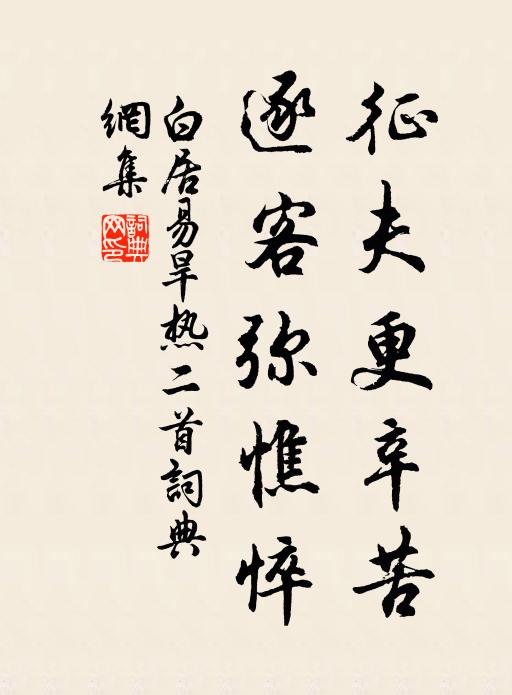 征夫更辛苦
逐客弥憔悴
白居易旱热二首詞典
網集
詞典網印